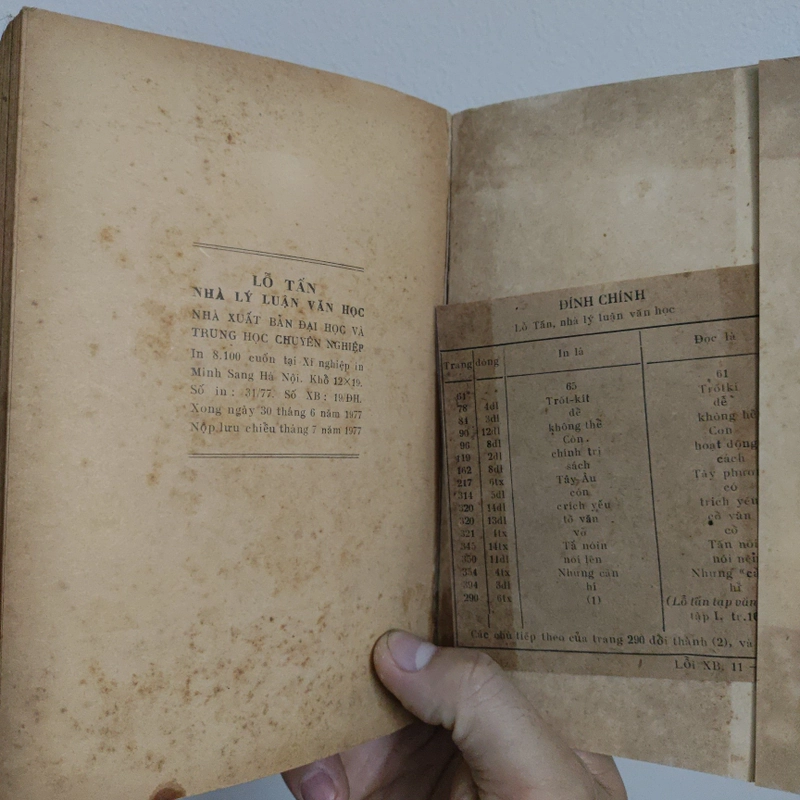 LỖ TẤN
NHÀ LÝ LUẬN VĂN HỌC
NHÀ XUẤT BẢN ĐẠI HỌC VÀ
TRUNG HỌC CHUYÊN NGHIỆP
In 8.100 cuốn tại Xí nghiệp in
Minh Sang Hà Nội. Khổ 12×19.
Số in: 31/77. Số XB: 19/ĐH.
Xong ngày 30 tháng 6 năm 1977
Nộp lưu chiều tháng 7 năm 1977
ĐÍNH CHÍNH
Lỗ Tấn, nhà lý luận văn học
Trang dòng In là Đọc là
61 65 61
78 4dl Trôt-kit Trôtki
84 3dl dề dễ
90 12dl không thể không hề
96 8dl Còn Con
119 2dl chính trị hoạt động
162 8dl sách cách
217 6tx Tây Âu Tây phươ
314 5dl còn có
320 14dl crích yếu trích yếu
320 13dl tồ văn cồ văn
321 1tx vở cồ
345 14tx Tả nóin Tấn nói
350 11dl nói lên
354 4tx Nhưng căn Nhưng
394 3dl hỉ hỉ
290 6tx (1) (Lỗ tấn tạp văn
tập I, tr.10
Các chú tiếp theo của trang 290 đổi thành (2), và
Lỗi XB. 11